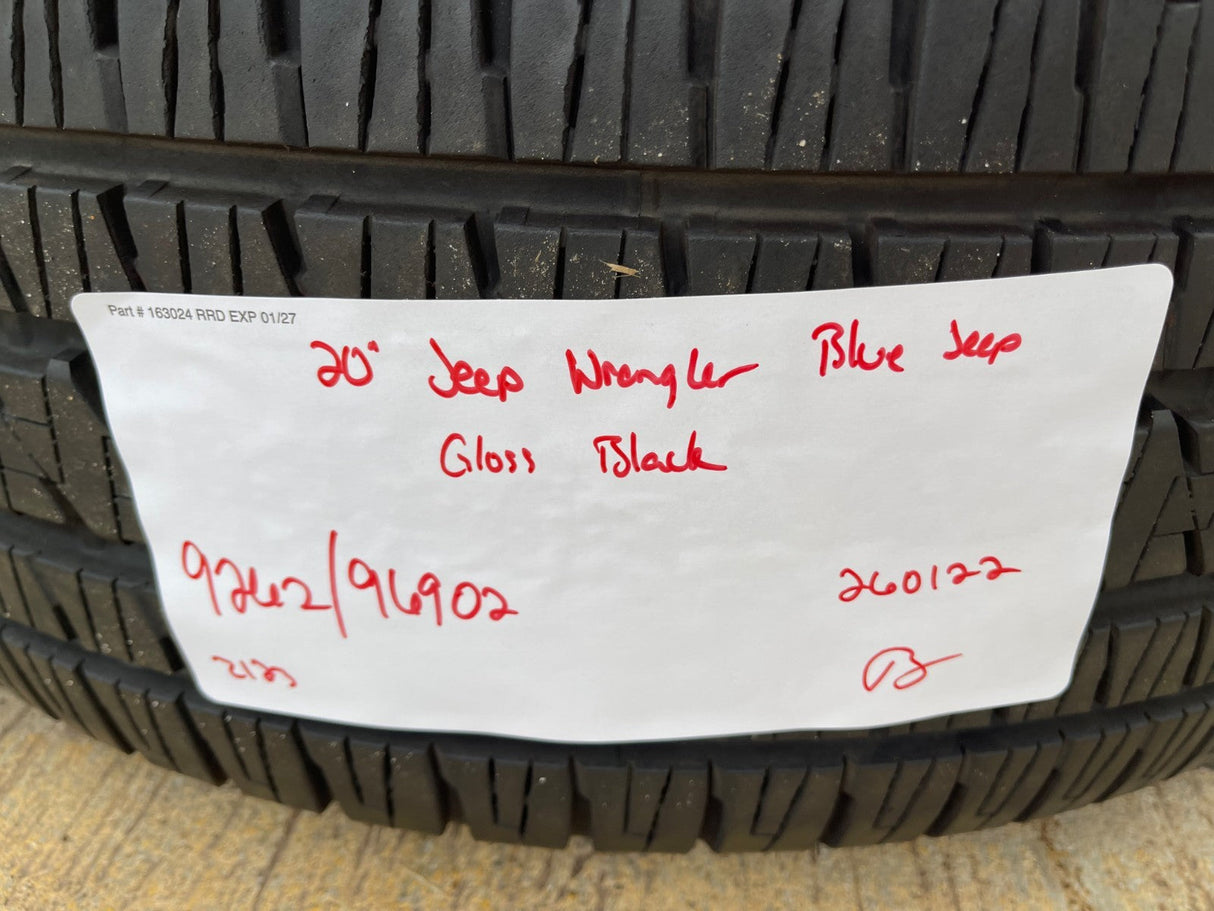 Part # 163024 RRD EXP 01/27
20" Jeep Wrangler Blue Jeep
Gloss Black
9262/96902
260122
2123
B